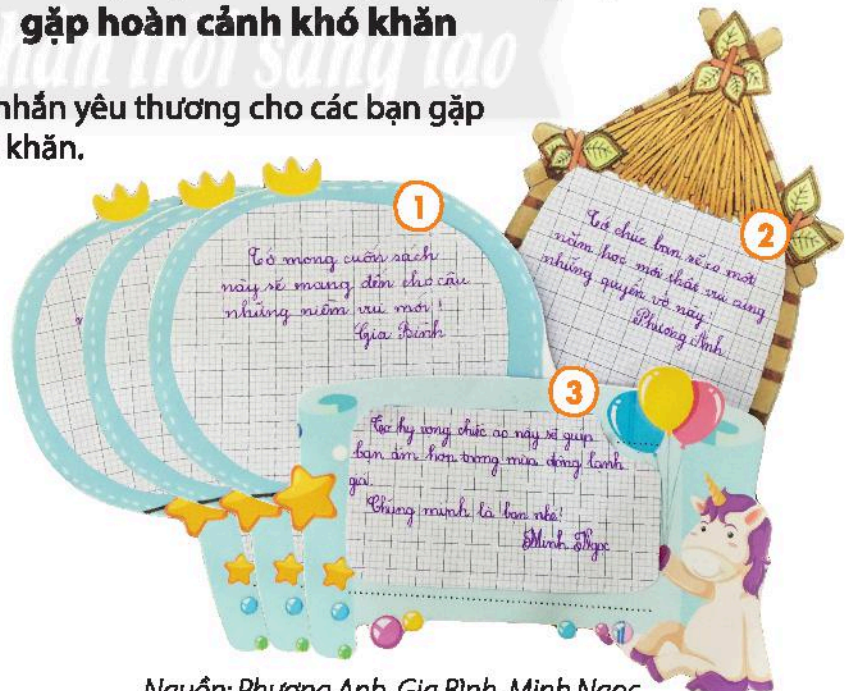 gặp hoàn cảnh khó khăn
nhắn yêu thương cho các bạn gặp
khăn.
1
Tớ mong cuốn sách
này sẽ mang đến cho cậu
những niềm vui mới!
Gia Bình
2
Tớ chúc bạn sẽ có một
năm học mới thật vui cùng
những quyển vở này.
Phương Anh
3
Tớ hy vọng chiếc áo này sẽ giúp
bạn ấm hơn trong mùa đông lạnh
giá.
Chúng mình là bạn nhé!
Minh Ngọc
Nguồn: Phương Anh, Gia Bình, Minh Ngọc